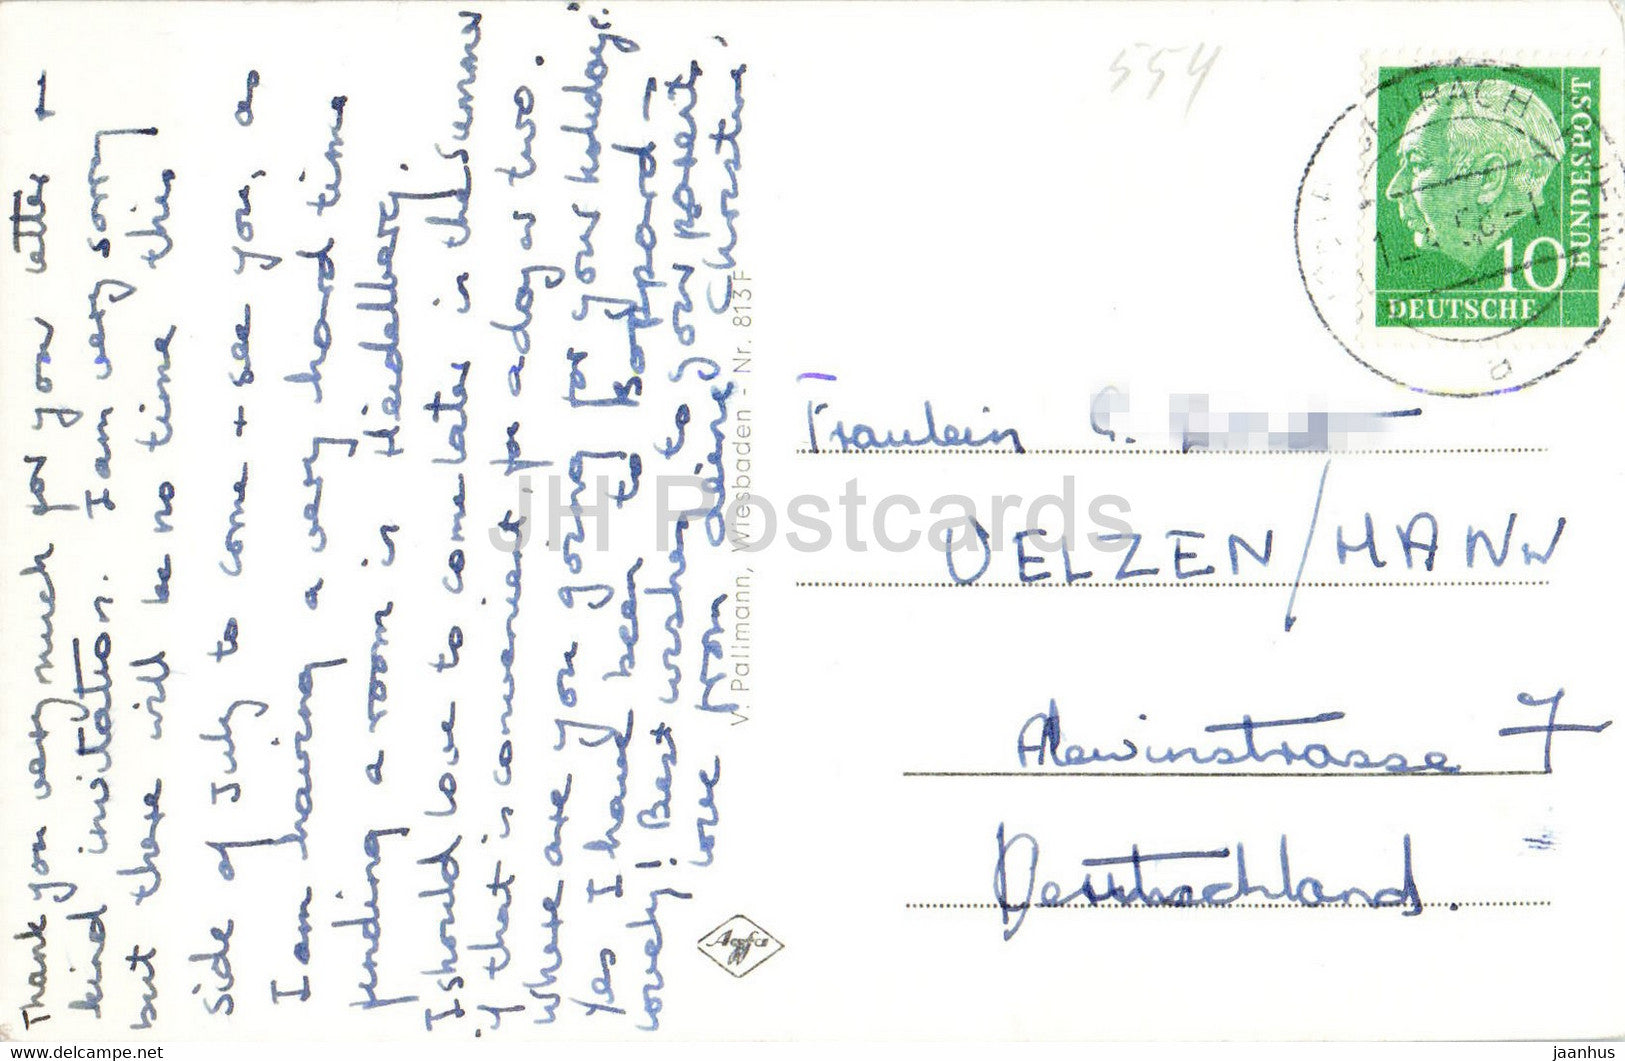 Thank you very much for your letter +
kind invitation. I am very sorry
but there will be no time this
side of July to come + see you, as
I am having a very hard time
finding a room in Heidelberg.
I should love to come later in the summer
if that is convenient, for a day or two.
Where are you going for your holiday?
Yes I have been to Boppard –
lovely! Best wishes to your parents,
love from
Christine
V. Pallmann, Wiesbaden - Nr. 813 F
Agfa
554
DEUTSCHE
BUNDESPOST
10
a
Fraulein G.
UELZEN / HANN
Alewinstrasse 7
Deutschland.
JH Postcards
www.delcampe.net
jaanhus